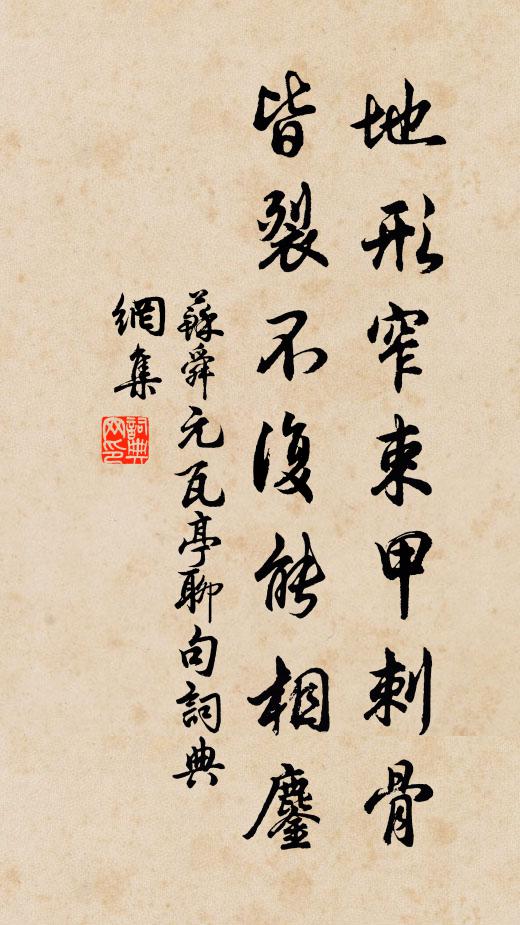 地形窄束甲刺骨
皆裂不復能相鏖
蘇舜元瓦亭聊句詞典
網集
詞典
网印